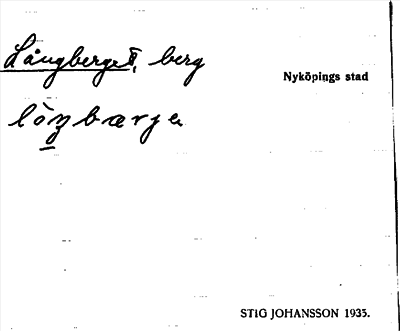 Långberget, berg
Nyköpings stad
lòŋbærje
STIG JOHANSSON 1935.